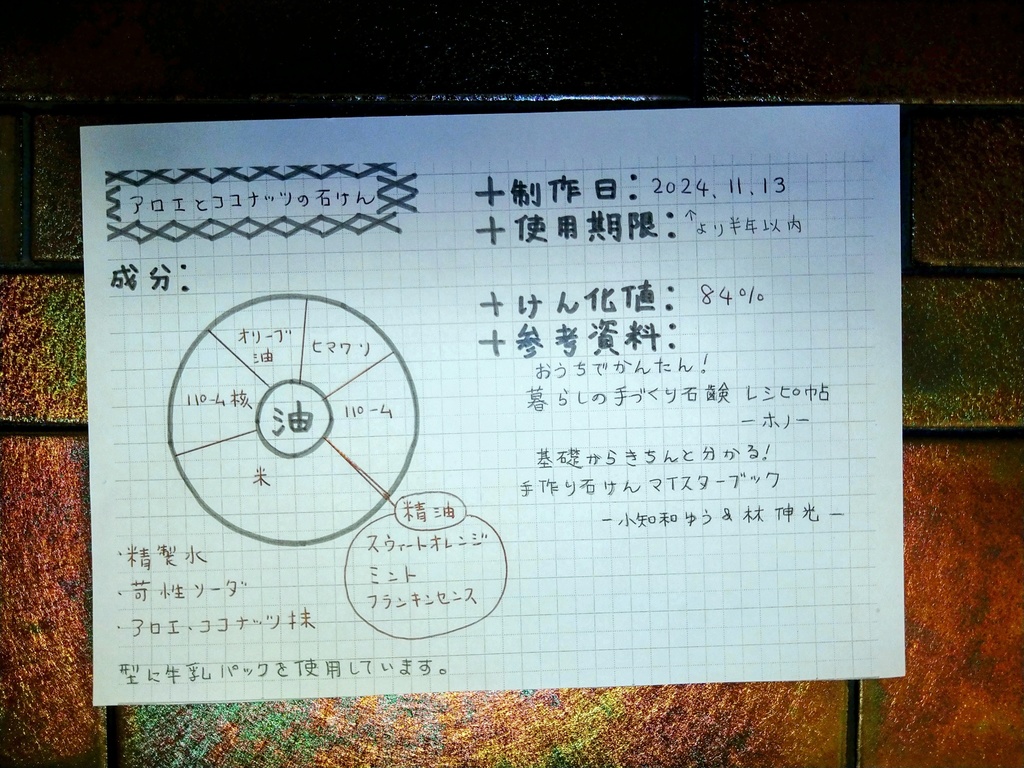 アロエとココナッツの石けん
成分:
オリーブ
油
ヒマワリ
パーム核
パーム
油
米
精油
スウィートオレンジ
ミント
フランキンセンス
・精製水
・苛性ソーダ
・アロエ、ココナッツ抹
型に牛乳パックを使用しています。
+制作日: 2024.11.13
+使用期限: ↑より半年以内
+けん化値: 84%
+参考資料:
おうちでかんたん!
暮らしの手づくり石鹸 レシピ帖
ーホノー
基礎からきちんと分かる!
手作り石けんマイスターブック
ー小知和ゆう&林 伸光ー